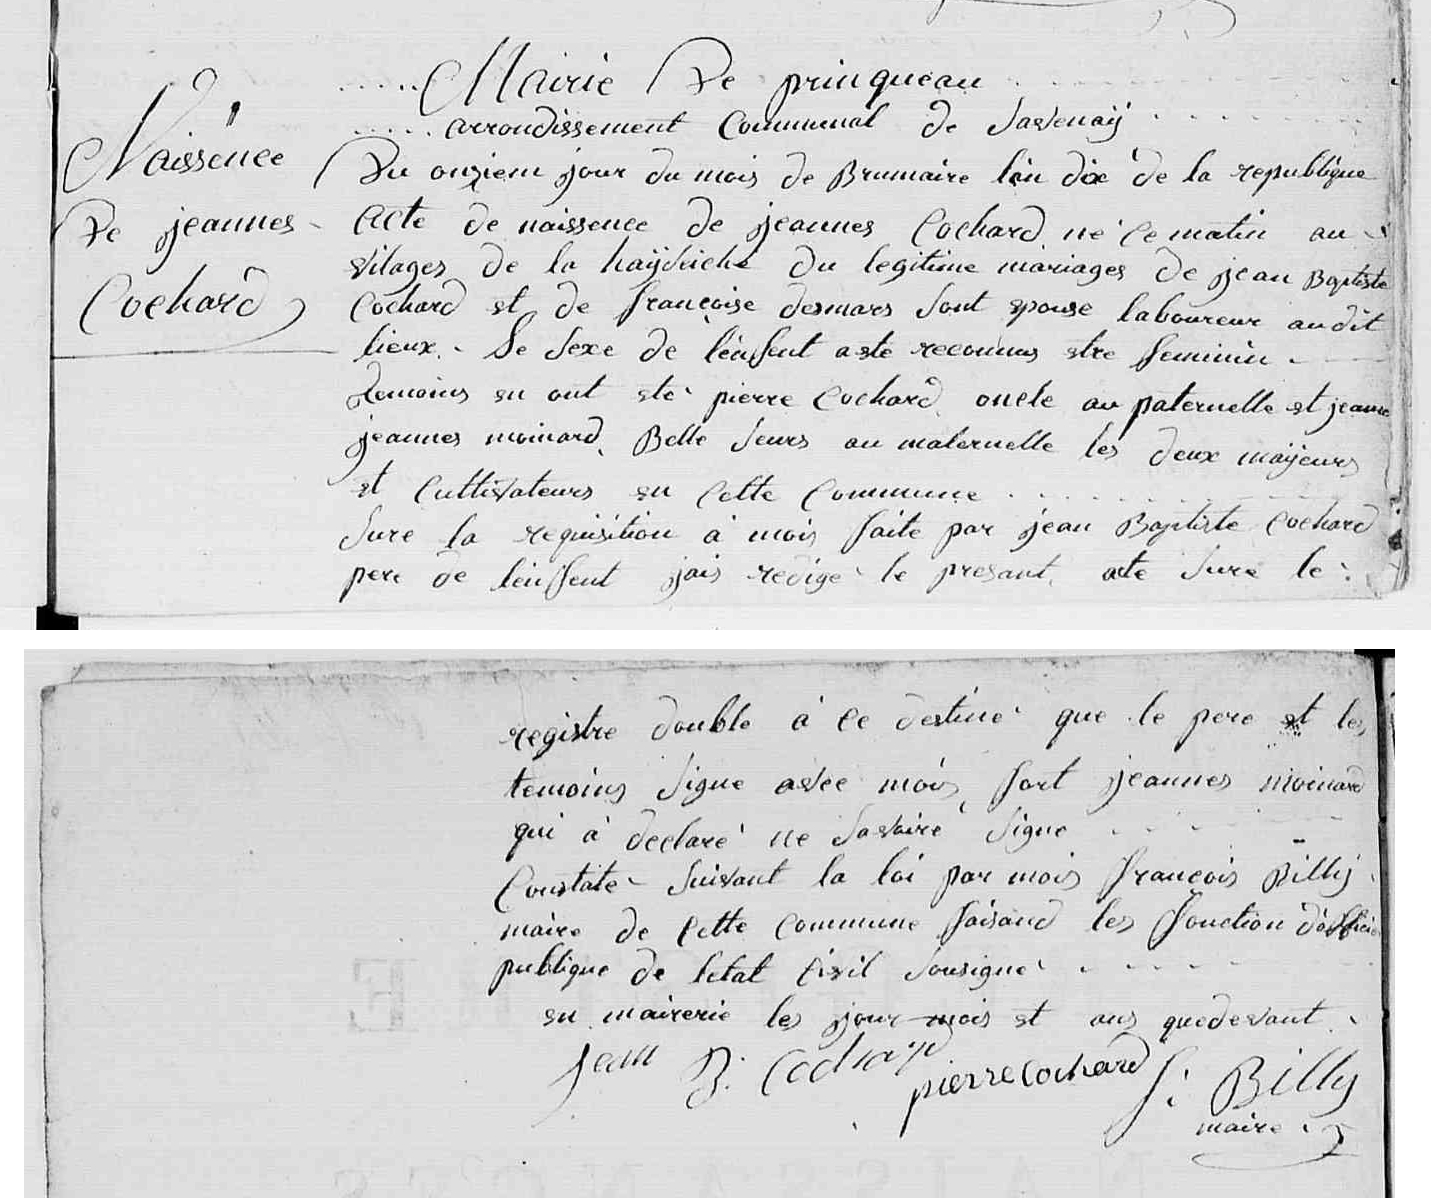 Mairie De prinqueau
arrondissement Communal de Savenaÿ
Naissence
De jeannes
Cochard
Du onziem jour du mois de Brumaire lan dix de la republique
acte de naissence de jeannes Cochard né ce matin au
vilages de la du legitime mariages de jean Baptiste
Cochard et de françoise desmars sont epouse laboureur audit
lieux. Le sexe de l'enfent a ete reconnus etre feminin
temoins en ont eté pierre Cochard oncle au paternelle et jeanne
jeannes moinard Belle seurs au maternelle les deux majeurs
et cultivateurs en cette commune
sure la requisition a mois faite par jean Baptiste Cochard
pere de lenffent jais redigé le presant acte sure le
registre double à ce destiné que le pere et les
temoins signe avec mois fort jeannes moinard
qui à declaré ne savoiré signe
Constate suivant la loi par mois françois Billy
maire de cette commune faisand les fonction d'officie
publique de letat civil sousigné
en mairerie les jour mois et ans quedevant
jean B. Cochard pierre cochard f. Billy
maire